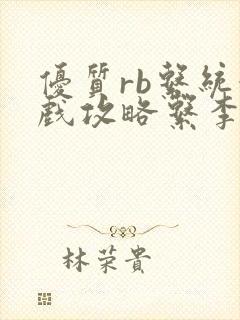 優質rb繫統
戲攻略繫李
林荣貴